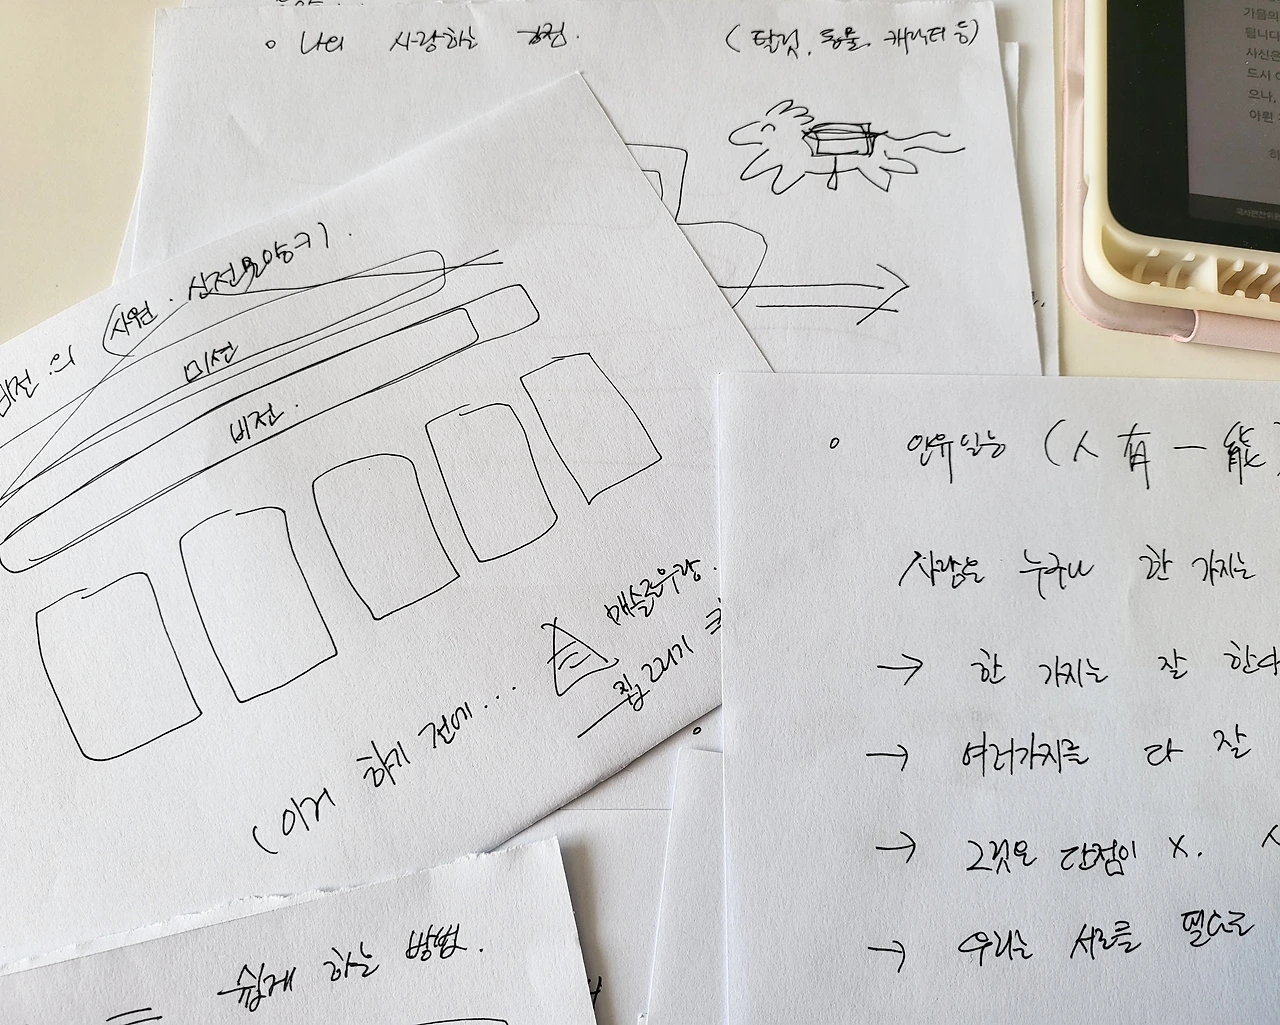 나의 사랑하는 강점.
(탈것, 동물, 캐릭터 등)
비전의 사원. 신전모양 키).
미션
비전.
매슬로우랑.
집 그리기
(이거 하기 전에...
쉽게 하는 방법.
인유일능 (人有一能)
사람은 누구나 한 가지는
→ 한 가지는 잘 한다
→ 여러가지를 다 잘
→ 그것은 단점이 X.
→ 우리는 서로를 필요로
가을의
됩니다
사신은
드시
으나,
아뢴